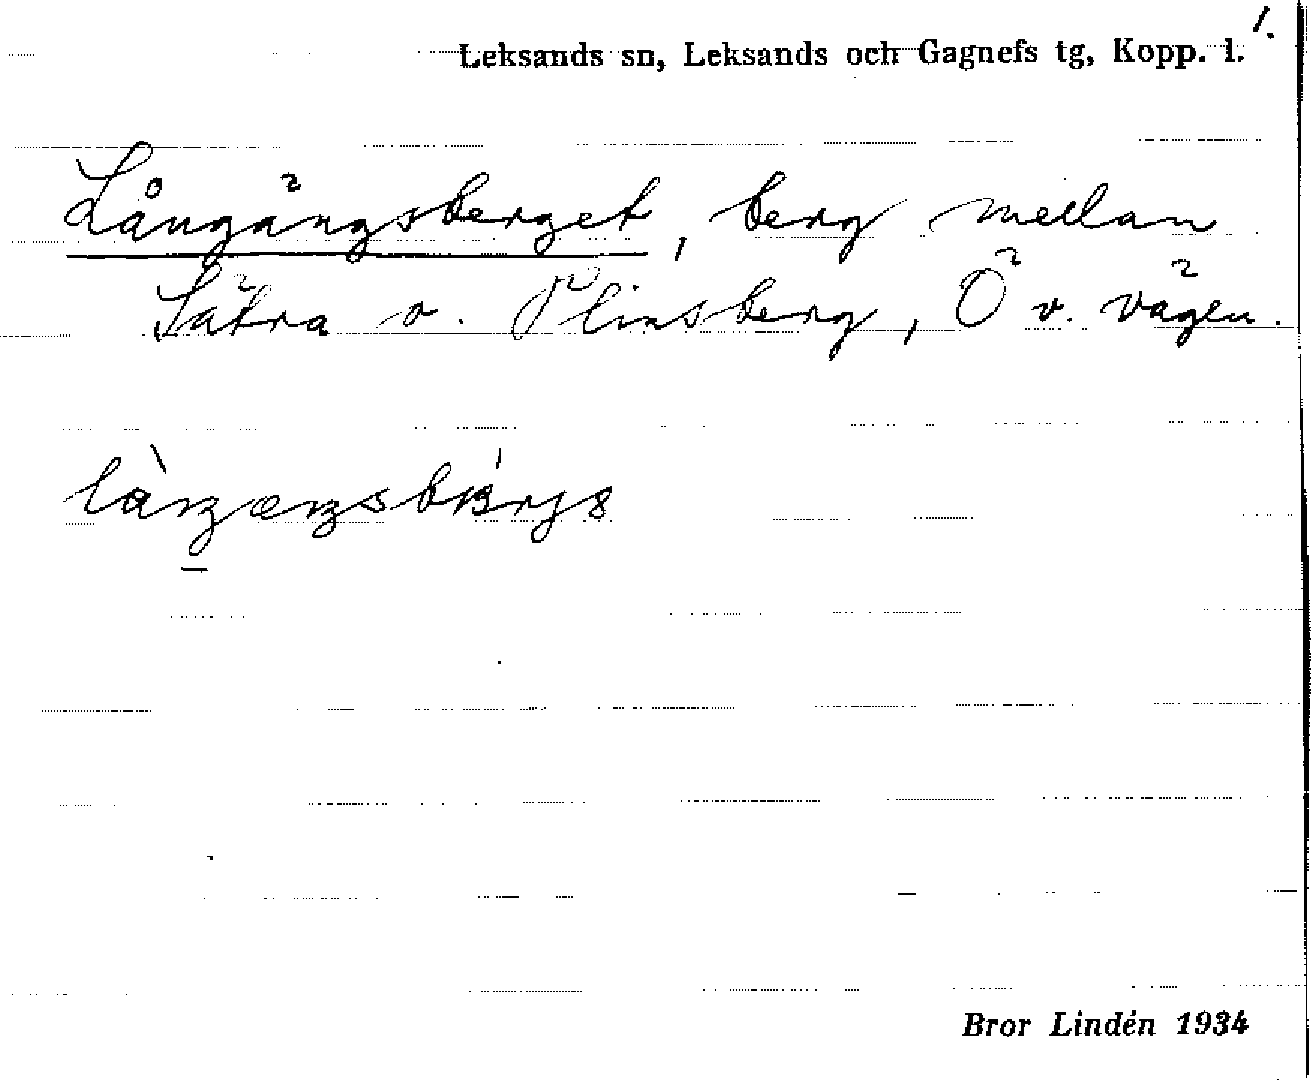 1.
Leksands sn, Leksands och Gagnefs tg, Kopp. l.
Långängsberget, berg mellan
Sätra o. Plinsberg, Ö v. vägen.
Bror Lindén 1934